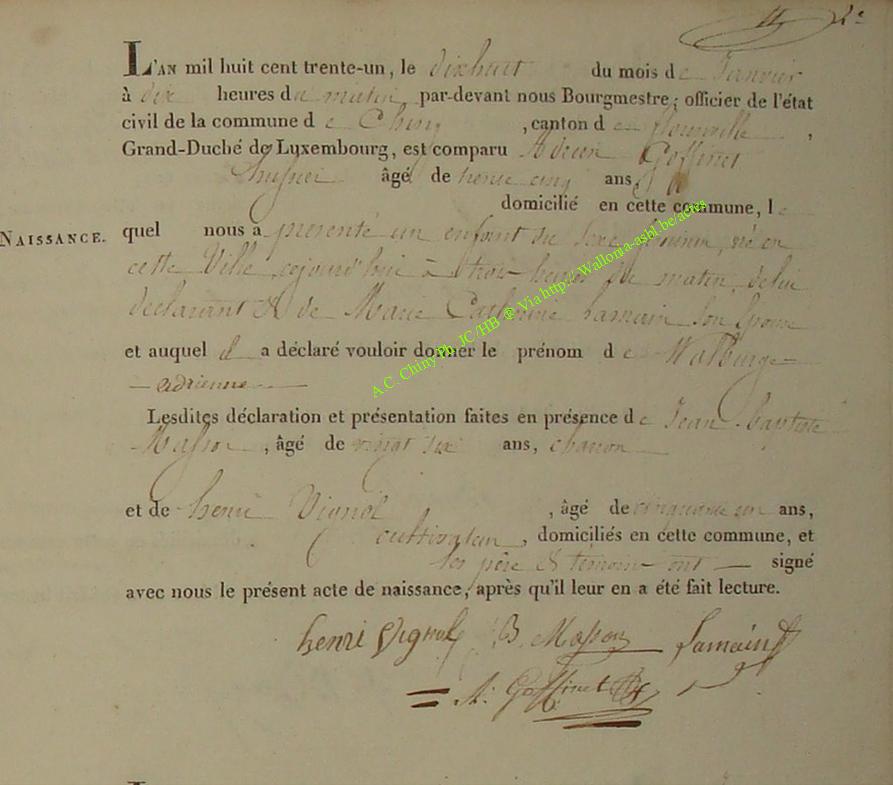 2e
L'AN mil huit cent trente-un, le dixhuit du mois de Janvier
à dix heures du matin, par-devant nous Bourgmestre, officier de l'état
civil de la commune de Chiny, canton de florenville,
Grand-Duché de Luxembourg, est comparu Adrien Goffinet
âgé de trente cinq ans,
domicilié en cette commune, le
NAISSANCE.
quel nous a présenté un enfant du sexe féminin, né en
cette Ville, cejourd'hui à trois heures du matin, de lui
déclarant & de Marie Catherine Lamain son épouse
et auquel il a déclaré vouloir donner le prénom de Walburge
adrienne
Lesdites déclaration et présentation faites en présence de Jean baptiste
Masson, âgé de vingt six ans, charon
et de henri Vignol, âgé de cinquante un ans,
cultivateur, domiciliés en cette commune, et
les père & témoins ont signé
avec nous le présent acte de naissance, après qu'il leur en a été fait lecture.
henri Vignol J B. Masson Lamain
A. Goffinet
A.C. Chiny Ph. JC /HB @ Via http:// Wallonia-asbl.be/actes